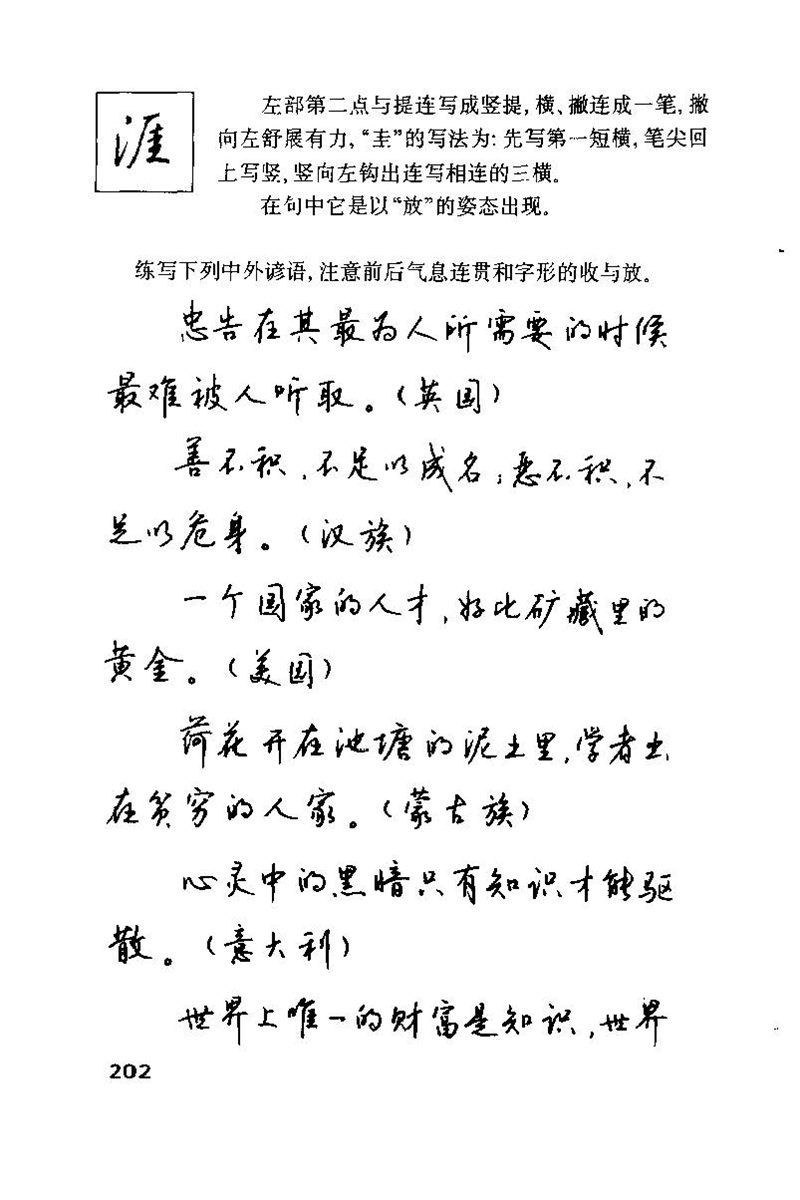 涯
左部第二点与提连写成竖提,横、撇连成一笔,撇
向左舒展有力,“圭”的写法为:先写第一短横,笔尖回
上写竖,竖向左钩出连写相连的三横。
在句中它是以“放”的姿态出现。
练写下列中外谚语,注意前后气息连贯和字形的收与放。
忠告在其最为人所需要的时候
最难被人听取。(英国)
善不积,不足以成名;恶不积,不
足以危身。(汉族)
一个国家的人才,好比矿藏里的
黄金。(美国)
荷花开在池塘的泥土里,学者出
在贫穷的人家。(蒙古族)
心灵中的黑暗只有知识才能驱
散。(意大利)
世界上唯一的财富是知识,世界
202